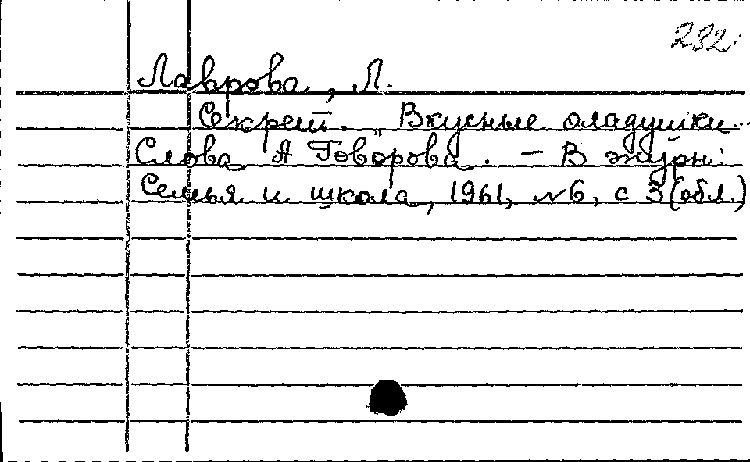 232.
Лаврова, Л.
Секрет. „Вкусные оладушки..
Слова А Говорова. - В журн:
Семья и школа, 1961, №6, с 3 (обл.)